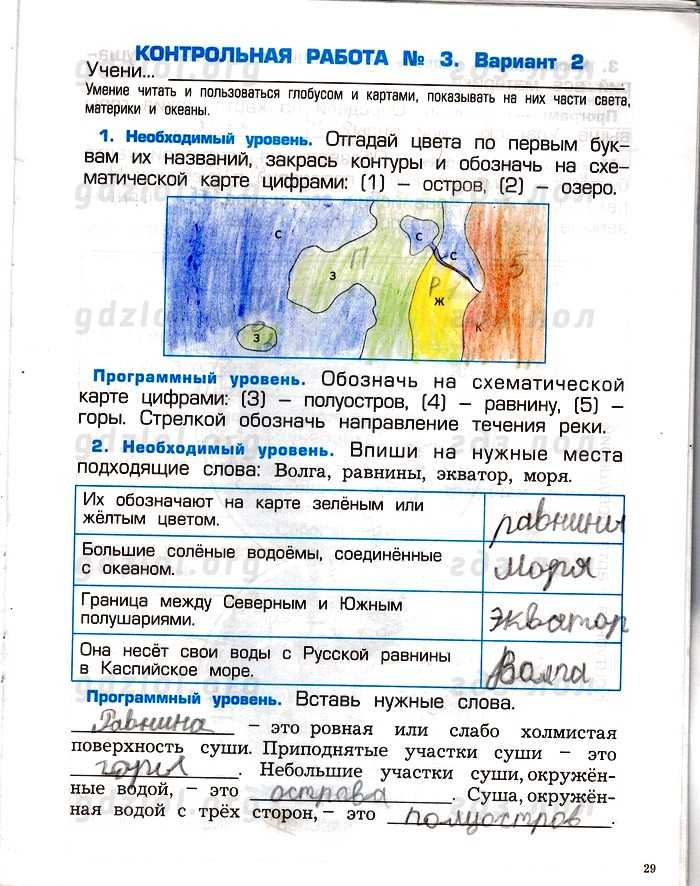 КОНТРОЛЬНАЯ РАБОТА № 3. Вариант 2
Учени...
Умение читать и пользоваться глобусом и картами, показывать на них части света,
материки и океаны.
1. Необходимый уровень. Отгадай цвета по первым бук-
вам их названий, закрась контуры и обозначь на схе-
матической карте цифрами: (1) – остров, (2) – озеро.
С С С
З П Р Б
З Ж К
Программный уровень. Обозначь на схематической
карте цифрами: (3) – полуостров, (4) – равнину, (5) –
горы. Стрелкой обозначь направление течения реки.
2. Необходимый уровень. Впиши на нужные места
подходящие слова: Волга, равнины, экватор, моря.
Их обозначают на карте зелёным или
жёлтым цветом.
равнины
Большие солёные водоёмы, соединённые
с океаном.
моря
Граница между Северным и Южным
полушариями.
экватор
Она несёт свои воды с Русской равнины
в Каспийское море.
Волга
Программный уровень. Вставь нужные слова.
Равнина – это ровная или слабо холмистая
поверхность суши. Приподнятые участки суши – это
горы. Небольшие участки суши, окружён-
ные водой, – это острова. Суша, окружён-
ная водой с трёх сторон, – это полуостров.
29
gdzlol.org
гдз.лол